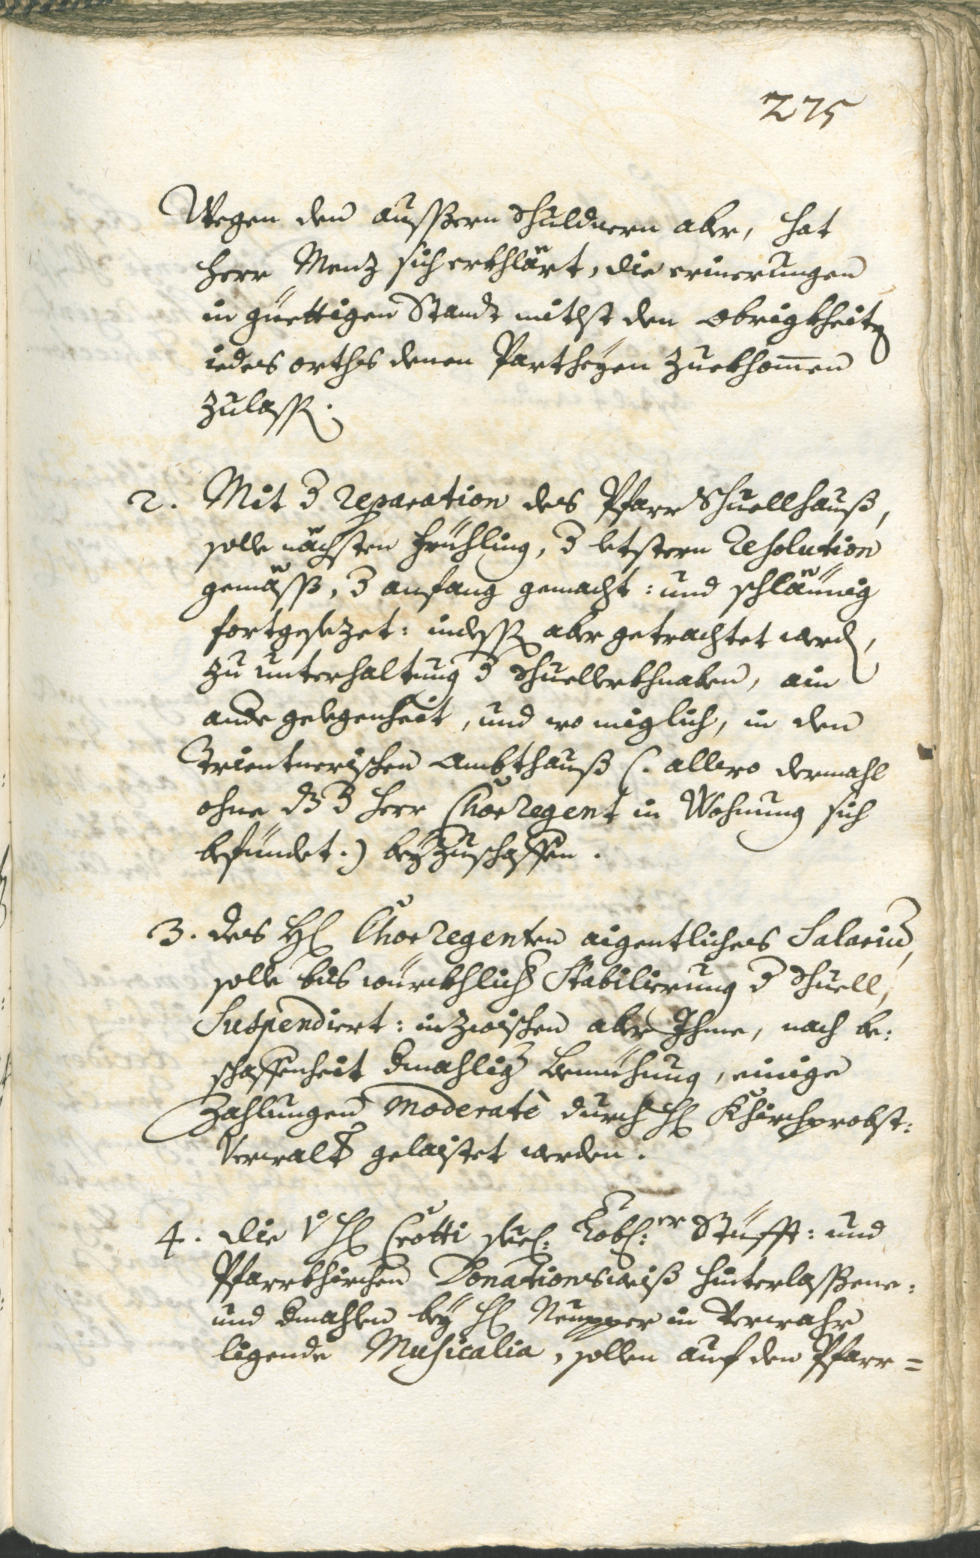 275
Wegen den äussern Schuldnern aber, hat
Herr Menz sich erkhlärt, die erinerungen
in güettigen Standt mitlst den Obrigkheiten
iedes orths denen Partheyen zuekhommen
zulassen.
2. Mit der reparation des Pfarr Schuellhauß,
solle nächsten Früehling, der letstern Resolution
gemäß, der anfang gemacht: und schläunig
fortgesezet: indessen aber getrachtet werden,
zu unterhaltung der Schuellerkhnaben, ain
andere gelegenheit, und wo miglich, in den
Trientnerischen Ambthauß (: allwo dermahl
ohne das der Herr Chorregent in Wohnung sich
befündet:) beyzuschaffen.
3. Des Herrn Chorregenten aigentliches Salarium,
solle bis würckhlicher Stabilierung der Schuell,
Suspendiert: inzwischen aber Ihme, nach be:
schaffenheit dermahliger bemühung, einige
Zahlungen moderatè durch Herrn Khirchprobst:
Verwalter gelaistet werden.
4. Die von Herrn Crotti seel: Lobl:er Stüfft: und
Pfarrkhirchen Donationsweiß hinterlassene:
und dermahlen bey Herrn Neupper in Verwahr
ligende Musicalia, sollen auf den Pfarr=